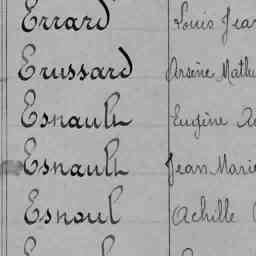 Errard Louis Jean
Erussard Arsène Mathu
Esnault Eugène
Esnault Jean Marie
Esnoul Achille